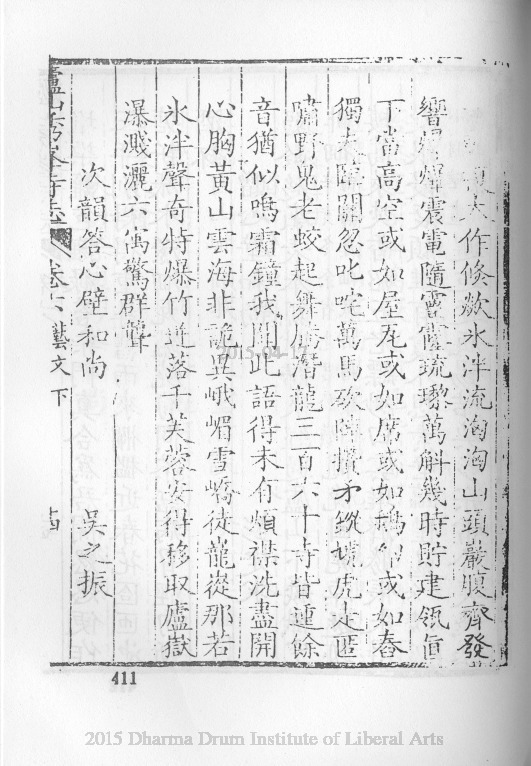 大作倏歘氷泮流洶洶山頭巖腹齊發
響燁震電隨霹靂琉瓈萬斛幾時貯建瓴直
下當高空或如屋瓦或如席或如鵝卵或如舂
獨夫臨關忽叱咤萬馬攻陣攢矛鏦虓虎走匿
嘯野鬼老蛟起舞屠潛龍三百六十寺皆連餘
音猶似鳴霜鐘我聞此語得未有煩襟洗盡開
心胸黃山雲海非詭異峨嵋雪嶠徒巃嵸那若
氷泮聲奇特爆竹迸落千芙蓉安得移取廬嶽
瀑濺灑六寓驚群聾
次韻答心壁和尚
吳之振
廬山秀峯寺志
卷六
藝文下
411
2015 Dharma Drum Institute of Liberal Arts